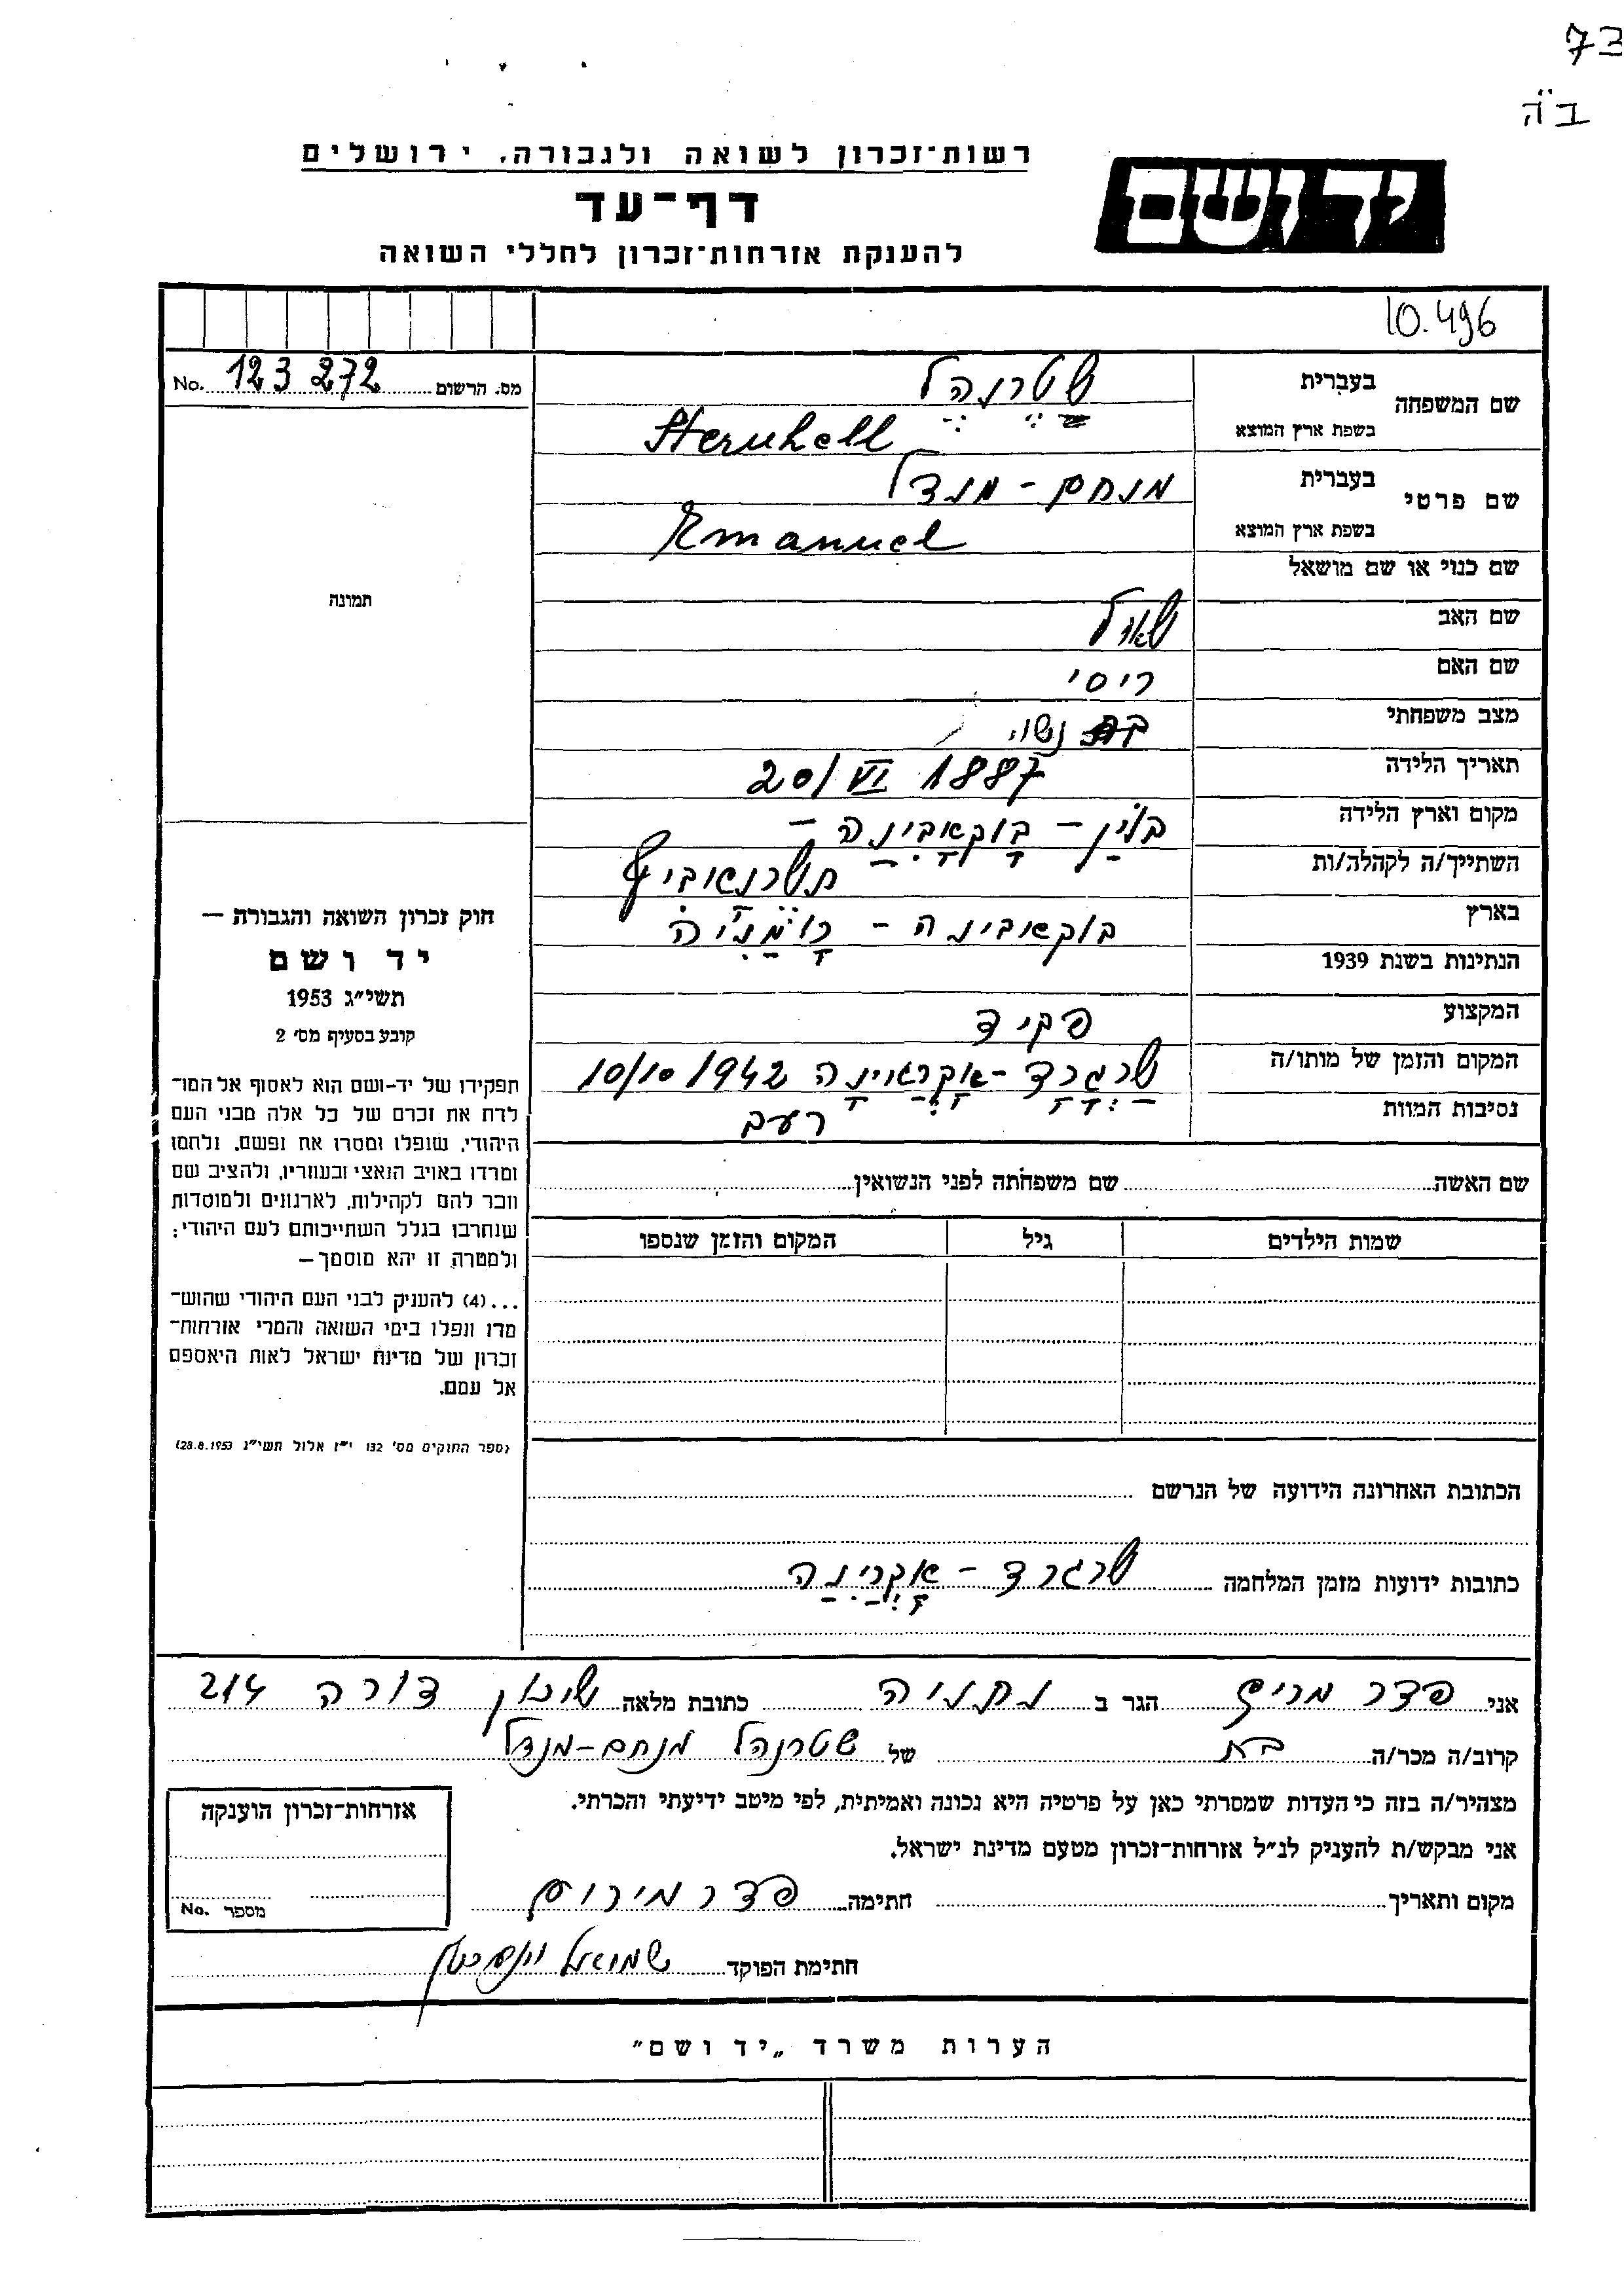 73
ב"ה
רשות־זכרון לשואה ולגבורה, ירושלים
יד ושם
דף־עד
להענקת אזרחות־זכרון לחללי השואה
10.496
מס. הרשום 123 272 No.
שם המשפחה בעברית שטרנהל
בשפת ארץ המוצא Sternhell
שם פרטי בעברית מנחם - מנדל
בשפת ארץ המוצא Emanuel
שם כנוי או שם מושאל
תמונה
שם האב שאול
שם האם ריסי
מצב משפחתי נשוי
תאריך הלידה 20/VI 1887
מקום וארץ הלידה בוקאבינה -
השתייך/ה לקהלה/ות
בארץ בוקאבינה - רומניה
הנתינות בשנת 1939
המקצוע פקיד
המקום והזמן של מותו/ה שרגרד - אוקראינה 10/10 1942
נסיבות המוות רעב
חוק זכרון השואה והגבורה —
יד ושם
תשי"ג 1953
קובע בסעיף מס' 2
תפקידו של יד-ושם הוא לאסוף אל המו־
לדת את זכרם של כל אלה מבני העם
היהודי, שנפלו ומסרו את נפשם, נלחמו
ומרדו באויב הנאצי ובעוזריו, ולהציב שם
וזכר להם לקהילות, לארגונים ולמוסדות
שנחרבו בגלל השתייכותם לעם היהודי:
ולמטרה זו יהא מוסמך—
...(4) להעניק לבני העם היהודי שהוש־
מדו ונפלו בימי השואה והמרי אזרחות־
זכרון של מדינת ישראל לאות היאספם
אל עמם.
(ספר החוקים מס' 132 י"ז אלול תשי"ג 28.8.1953)
שם האשה שם משפחתה לפני הנשואין
שמות הילדים גיל המקום והזמן שנספו
הכתובת האחרונה הידועה של הנרשם
כתובות ידועות מזמן המלחמה שרגרד - אוקרינה
אני פדר מרים הגר ב נתניה כתובת מלאה שיכון דורה 214
קרוב/ה מכר/ה בת של שטרנהל מנחם-מנדל
מצהיר/ה בזה כי העדות שמסרתי כאן על פרטיה היא נכונה ואמיתית, לפי מיטב ידיעתי והכרתי.
אני מבקש/ת להעניק לנ"ל אזרחות־זכרון מטעם מדינת ישראל.
מקום ותאריך חתימה פדר מירים
חתימת הפוקד שמואל
אזרחות־זכרון הוענקה
מספר No.
הערות משרד „יד ושם"